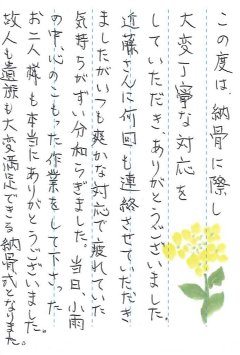 この度は、納骨に際し
大変丁寧な対応を
していただき、ありがとうございました。
近藤さんに何回も連絡させていただき
ましたがいつも爽かな対応で疲れていた
気持ちがずい分和らぎました。当日小雨
の中、心のこもった作業をして下さった
お二人様も本当にありがとうございました。
故人も遺族も大変満足できる納骨式となりました。